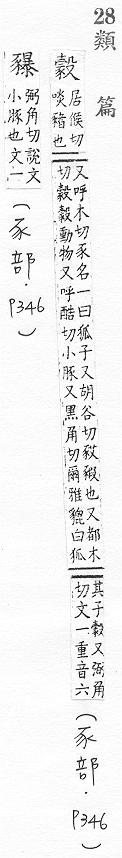 28 類篇
豰 居候切啖豬也
又呼木切豕名一曰狐子又胡谷切也又都木
切豰豰動物又呼酷切小豚又黑角切爾雅貔白狐
其子豰又弼角
切文一重音六
(豕部．P346)
弼角切說文
小豚也文一
(豕部．P346)